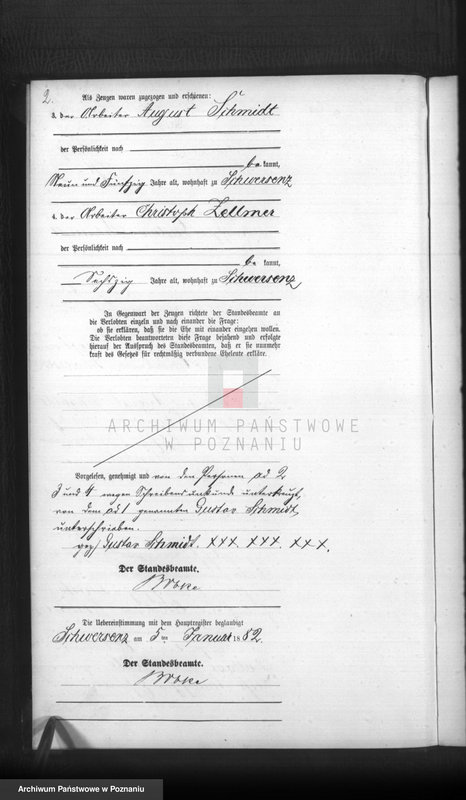 2.
Als Zeugen waren zugezogen und erschienen:
3. der Arbeiter August Schmidt
der Persönlichkeit nach
be kannt,
Neun und Fünfzig Jahre alt, wohnhaft zu Schwersenz
4. der Arbeiter Christoph Zellmer
der Persönlichkeit nach
be kannt,
Sechszig Jahre alt, wohnhaft zu Schwersenz
In Gegenwart der Zeugen richtete der Standesbeamte an
die Verlobten einzeln und nach einander die Frage:
ob sie erklären, daß sie die Ehe mit einander eingehen wollen.
Die Verlobten beantworteten diese Frage bejahend und erfolgte
hierauf der Ausspruch des Standesbeamten, daß er sie nunmehr
kraft des Gesetzes für rechtmäßig verbundene Eheleute erkläre.
ARCHIWUM PAŃSTWOWE
W POZNANIU
Vorgelesen, genehmigt und von den Personen ad 2
3 und 4 wegen Schreibensunkunde unterkreuzt,
von dem ad 1 genannten Gustav Schmidt
unterschrieben.
gez/ Gustav Schmidt. XXX. XXX. XXX.
Der Standesbeamte.
Die Uebereinstimmung mit dem Hauptregister beglaubigt
Schwersenz am 5ten Januar 1882.
Der Standesbeamte.
Archiwum Państwowe w Poznaniu